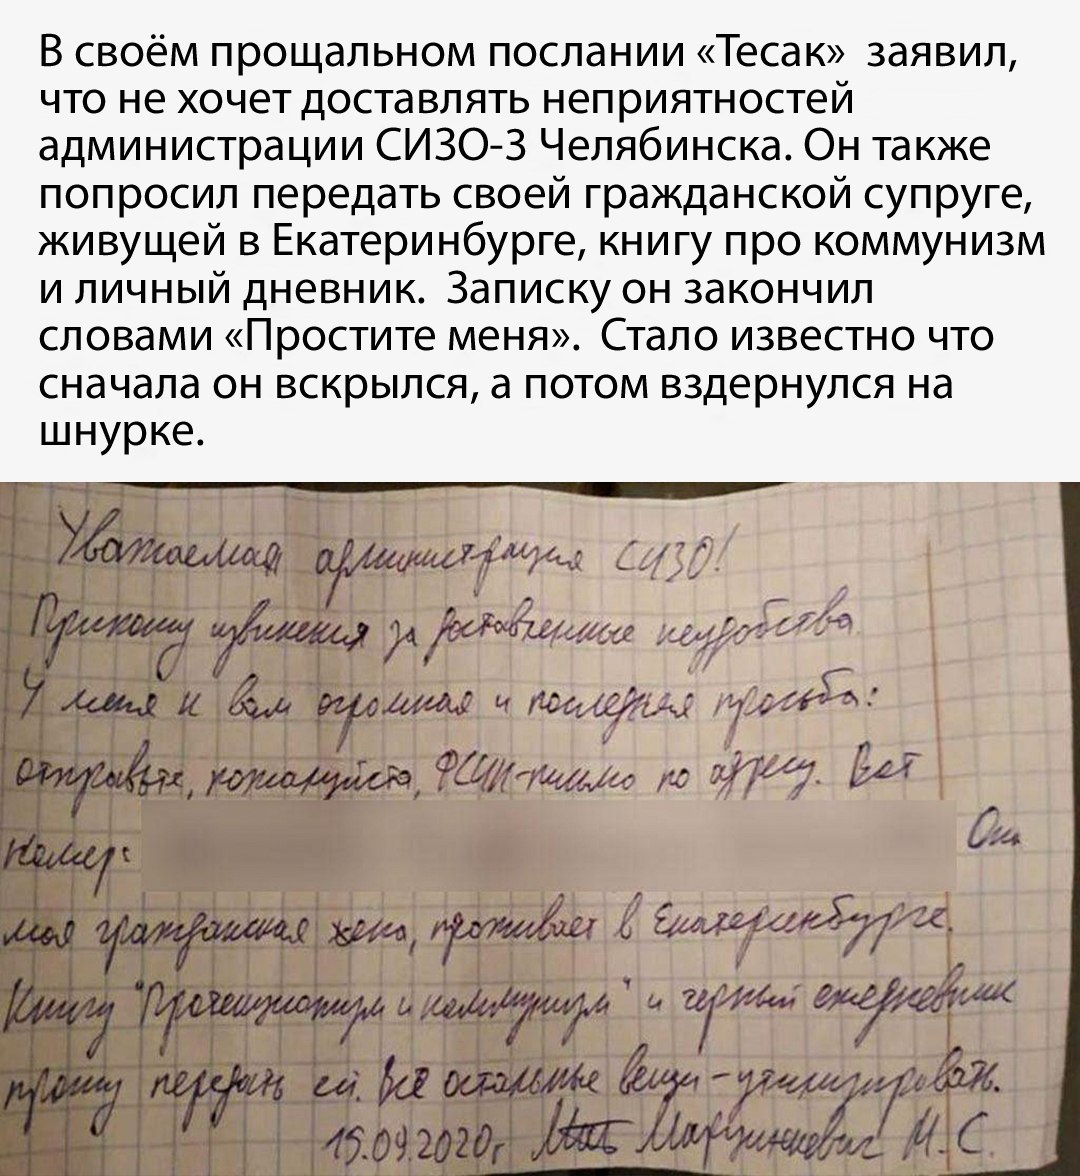 В своём прощальном послании «Тесак» заявил,
что не хочет доставлять неприятностей
администрации СИЗО-3 Челябинска. Он также
попросил передать своей гражданской супруге,
живущей в Екатеринбурге, книгу про коммунизм
и личный дневник. Записку он закончил
словами «Простите меня». Стало известно что
сначала он вскрылся, а потом вздернулся на
шнурке.
Уважаемая администрация СИЗО!
Приношу извинения за доставленные неудобства.
У меня к вам огромная и последняя просьба:
отправьте, пожалуйста, ФСИН-письмо по адресу. Вот
номер: Она
моя гражданская жена, проживает в Екатеринбурге.
Книгу "Протекционизм и коммунизм" и черный ежедневник
прошу передать ей. Всё остальные вещи - утилизировать.
15.09.2020г Марцинкевич М.С.